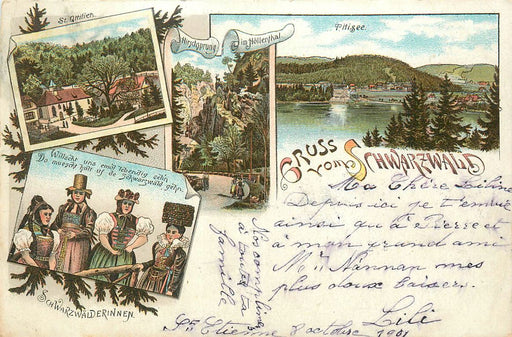 St. Ottilien.
Hirschsprung im Höllenthal
Titisee.
GRUSS vom SCHWARZWALD
Willscht uns emol lebendig sehn
Do muescht halt uf de Schwarzwald gehn.
SCHWARZWÄLDERINNEN.
Ma Chère Liline
Depuis ici je t'envoie
ainsi que à Pierre et
à mon grand ami
Mr Nannan mes
plus doux baisers.
Lili
Nos compliments
à toute ta
famille
St Etienne 8 octobre 1901